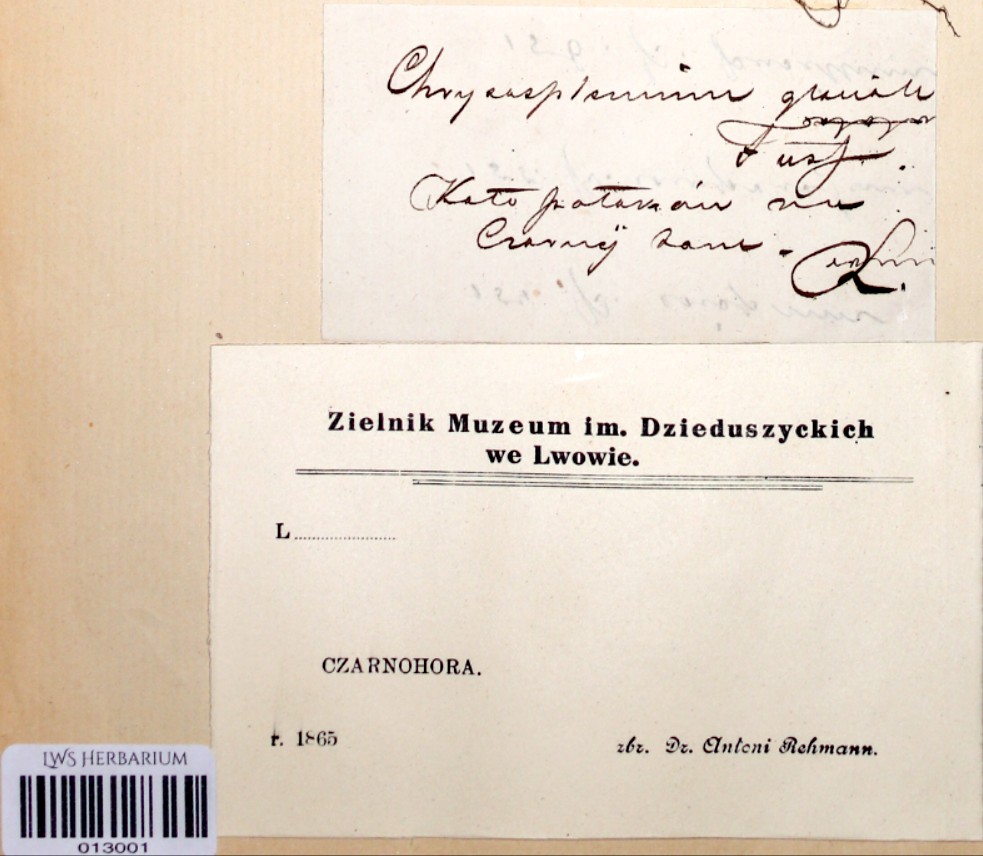 Chrysosplenium glaciale
Fusf.
Koło potoków na
Czarnej
R.
Zielnik Muzeum im. Dzieduszyckich
we Lwowie.
L
CZARNOHORA.
r. 1865
zbr. Dr. Antoni Rehmann.
LWS HERBARIUM
013001